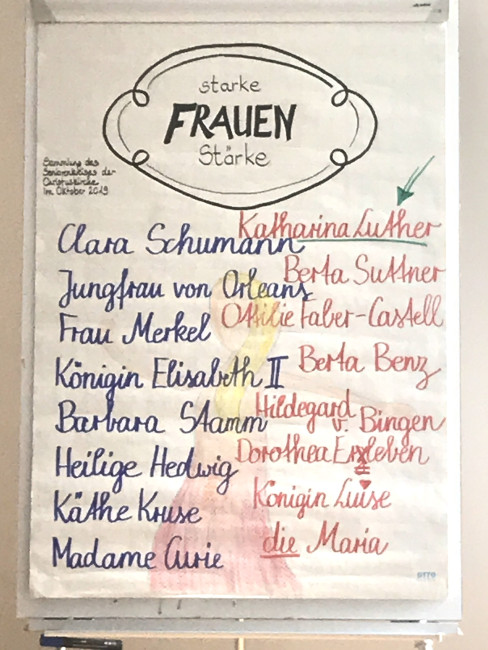 starke
FRAUEN
Stärke
Sammlung des
Seniorenkreises der
Christuskirche
im Oktober 2019
Clara Schumann
Jungfrau von Orleans
Frau Merkel
Königin Elisabeth II
Barbara Stamm
Heilige Hedwig
Käthe Kruse
Madame Curie
Katharina Luther
Berta Suttner
Ottilie Faber-Castell
Berta Benz
Hildegard
v. Bingen
Dorothea Erxleben
Königin Luise
die Maria